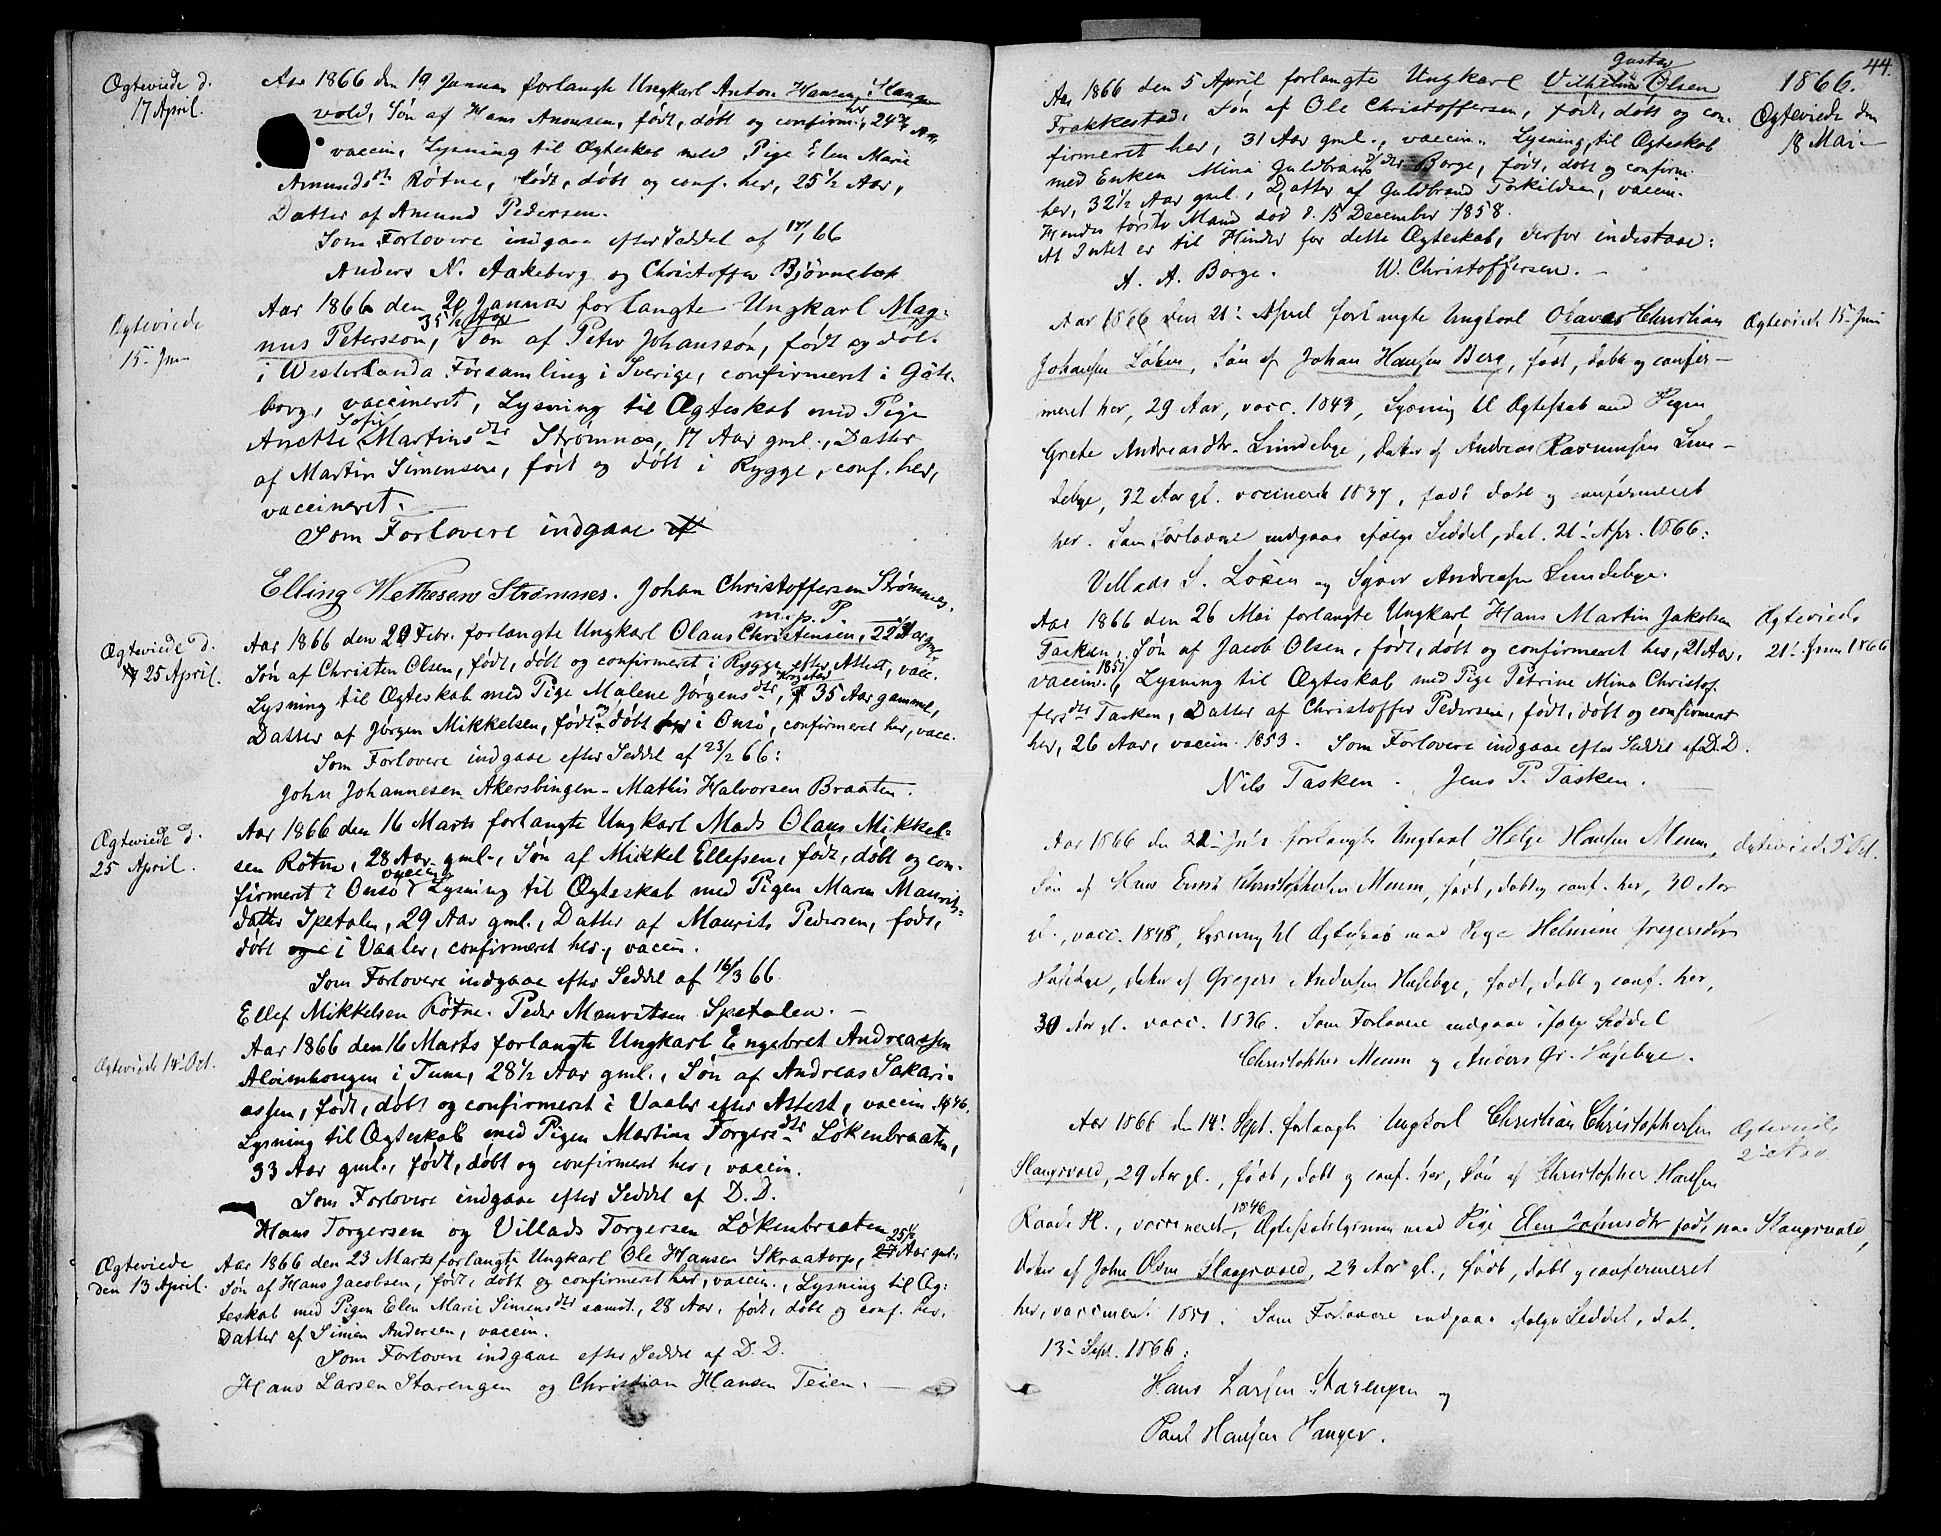 Ægteviede d.
17 April.
Aar 1866 den 19 Januar forlangte Ungkarl Anton Hansen i Haugs-
vold, Søn af Hans Amonsen, født, døbt og confirm. her, 24 3/4 Aar
vaccin, Lysning til Ægteskab med Pige Elen Marie
Amundsdtr Røtne, født, døbt og conf. her, 25 1/2 Aar,
Datter af Amund Pedersen.
Som Forlovere indgaae efter Seddel af 17/1 66
Anders N. Aakeberg og Christoffer Bjørnebæk
Ægteviede
15 Juni
Aar 1866 den 20 Januar forlangte Ungkarl Mag-
nus Petersson, 35 1/2 Aar Søn af Peter Johansson, født og døb.
i Westerlanda Församling i Sverige, confirmeret i Göte-
borg, vaccineret, Lysning til Ægteskab med Pige
Anette Sofie Martinsdtr Strømnæs, 17 Aar gml., Datter
af Martin Simensen, født og døbt i Rygge, conf. her,
vaccineret.
Som Forlovere indgaae
Elling Wethesen Strømnes. Johan Christoffersen Strømnes.
m. p. P.
Ægteviede d.
25 April.
Aar 1866 den 20 Febr. forlangte Ungkarl Olaus Christensen, 22 Aar gml.
Søn af Christen Olsen, født, døbt og confirmeret i Rygge efter Attest, vacc.
Lysning til Ægteskab med Pige Malene Jørgensdtr, 35 Aar gammel,
Datter af Jørgen Mikkelsen, født og døbt i Onsø, confirmeret her, vacc.
Som Forlovere indgaae efter Seddel af 23/2 66:
John Johannesen Akersbingen - Mathis Halvorsen Braaten.
Ægteviede d.
25 April.
Aar 1866 den 16 Marts forlangte Ungkarl Mads Olaus Mikkel-
sen Røtne, 28 Aar gml., Søn af Mikkel Ellefsen, født, døbt og con-
firmeret i Onsø, vaccin. Lysning til Ægteskab med Pigen Maren Maurits-
datter Spetalen, 29 Aar gml., Datter af Maurits Pedersen, født,
døbt og c i Vaaler, confirmeret her, vaccin.
Som Forlovere indgaae efter Seddel af 16/3 66
Ellef Mikkelsen Røtne. Peder Mauritsen Spetalen.
Ægteviede 14 Oct.
Aar 1866 den 16 Marts forlangte Ungkarl Engebret Andreassen
Alvimhougen i Tune, 28 1/2 Aar gml., Søn af Andreas Sakari-
assen, født, døbt og confirmeret i Vaaler efter Attest, vaccin. 1846.
Lysning til Ægteskab med Pigen Martine Torgersdtr Løkenbraaten,
33 Aar gml., født, døbt og confirmeret her, vaccin.
Som Forlovere indgaae efter Seddel af D. D.
Hans Torgersen og Villads Torgersen Løkenbraaten
Ægteviede
den 13 April.
Aar 1866 den 23 Marts forlangte Ungkarl Ole Hansen Skraatorp, 25 1/2 Aar gml.,
Søn af Hans Jacobsen, født, døbt og confirmeret her, vaccin., Lysning til Æg-
teskab med Pigen Elen Marie Simensdtr samst., 28 Aar, født, døbt og conf. her,
Datter af Simen Andersen, vaccin.
Som Forlovere indgaae efter Seddel af D. D.
Hans Larsen Starengen og Christian Hansen Teien.
44.
1866.
Aar 1866 den 5 April forlangte Ungkarl Vilhelm Gustav Olsen
Frakkestad, Søn af Ole Christoffersen, født, døbt og con-
firmeret her, 31 Aar gml., vaccin. Lysning til Ægteskab
med Enken Mina Guldbrandsdtr Borge, født, døbt og confirm.
her, 32 1/2 Aar gml., Datter af Guldbrand Torkildsen, vaccin.
Hendes første Mand død d. 15 December 1858.
At Intet er til Hinder for dette Ægteskab, derfor indestaae:
A. A. Borge. W. Christoffersen.
Ægteviede den
18 Mai
Aar 1866 den 21 April forlangte Ungkarl Olavus Christian
Johansen Løken, Søn af Johan Hansen Berg, født, døbt og confir-
meret her, 29 Aar, vacc. 1843, Lysning til Ægteskab med Pigen
Grete Andreasdtr. Lundebye, Datter af Andreas Rasmussen Lun-
debye, 32 Aar gl. vaccineret 1837, født døbt og confirmeret
her. Som Forlovere indgaae ifølge Seddel, dat. 21 Apr. 1866:
Villads S. Løken og Syver Andreasen Lundebye.
Ægteviede 15 Juni
Aar 1866 den 26 Mai forlangte Ungkarl Hans Martin Jakobsen
Tasken, Søn af Jacob Olsen, født, døbt og confirmeret her, 21 Aar,
vaccin. Lysning til Ægteskab med Pige Petrine Mina Christof-
fersdtr Tasken, Datter af Christoffer Pedersen, født, døbt og confirmeret
her, 26 Aar, vaccin. 1853. Som Forlovere indgaae efter Seddel af D. D.
Nils Tasken. Jens P. Tasken.
Ægteviede
21 Juni 1866
Aar 1866 den forlangte Ungkarl Helge Hansen Meum,
Søn af Hans Christophersen Meum, født, døbt og conf. her, 30 Aar
gl., vacc. 1848, Lysning til Ægteskab med Pige Helmine Gregersdtr
Husebye, datter af Gregers Andersen Husebye, født, døbt og conf. her,
30 Aar gl. vacc. 1836. Som Forlovere indgaae ifølge Seddel
Christopher Meum og Anders Gr. Husebye.
Ægteviede 5 Oct.
Aar 1866 den 14 Sept. forlangte Ungkarl Christian Christophersen
Haugsvold, 29 Aar gl., født, døbt og conf. her, Søn af Christopher Hansen
Raade Pl., vaccineret 1846, Ægteskabslysning med Pige Elen Johnsdtr født paa Haugsvold,
datter af John Olsen Haugsvold, 23 Aar gl., født, døbt og confirmeret
her, vaccineret 1851. Som Forlovere indgaae ifølge Seddel, dat.
13 Sept. 1866:
Hans Larsen Starengen og
Paul Hansen Hanger.
Ægteviede
2 Nov